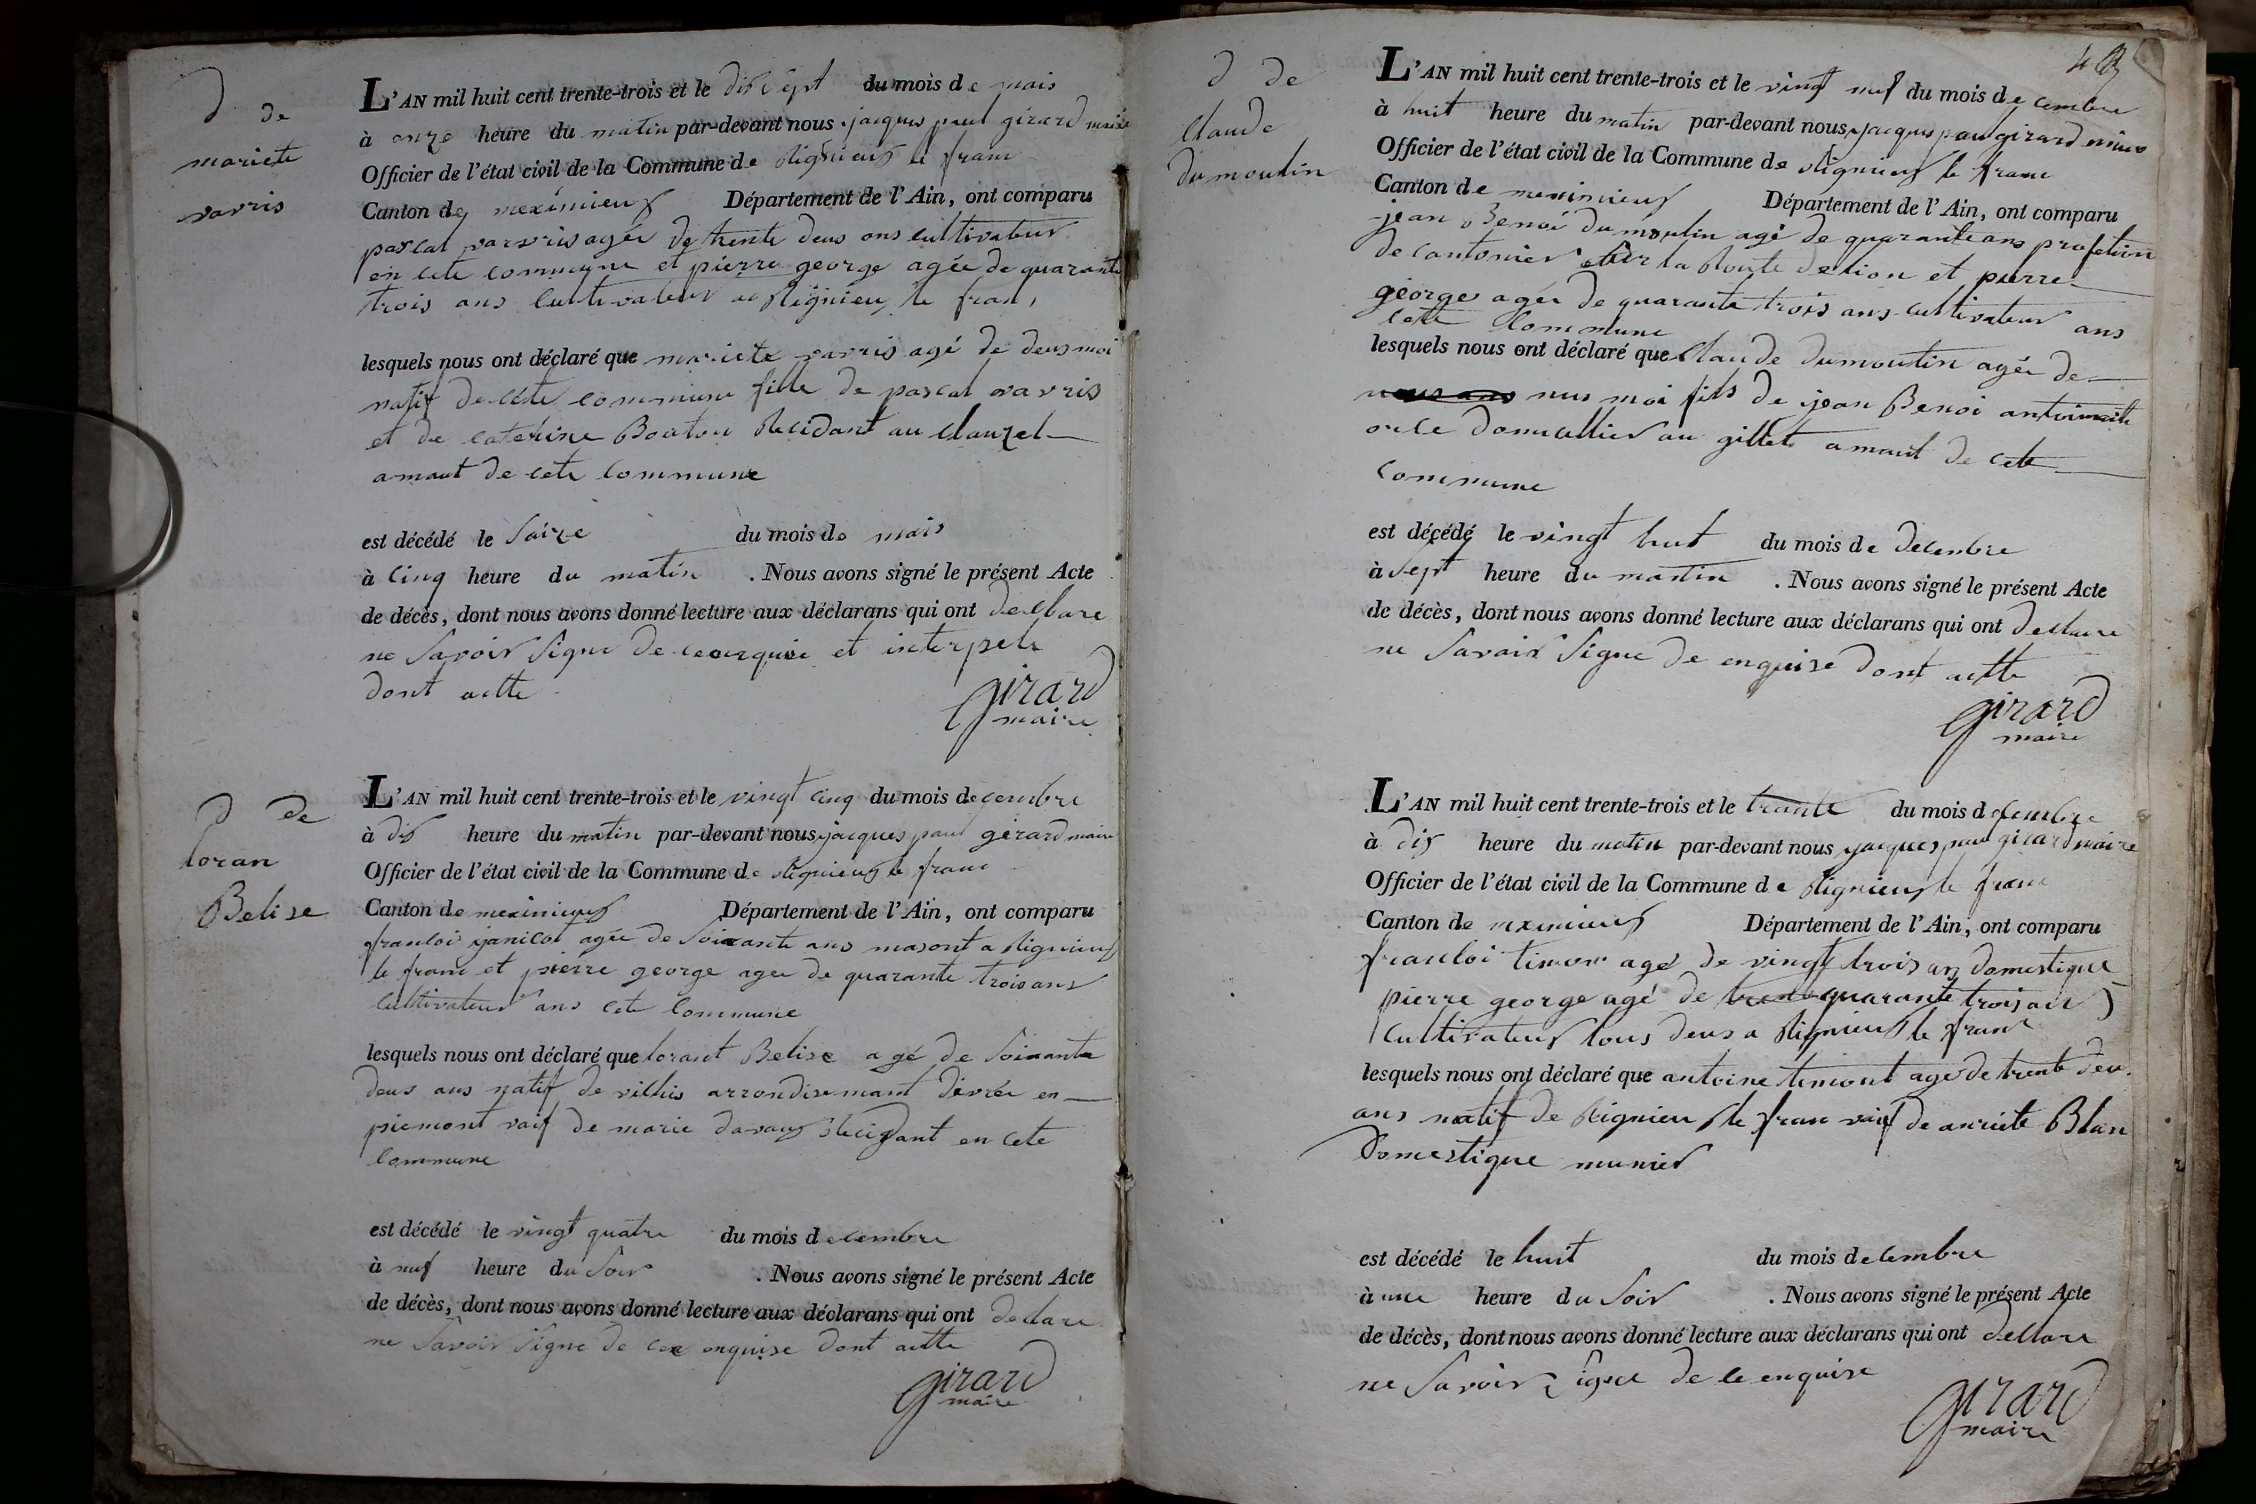 D de
mariete
varvis
L'AN mil huit cent trente-trois et le dis sept du mois de mais
à onze heure du matin par-devant nous jacques paul girard maire
Officier de l'état civil de la Commune de Rignieux le franc
Canton de meximieux Département de l'Ain, ont comparu
pascal varvris agée de trente deus ans cultivateur
en cete commune et pierre george agée de quarante
trois ans cultivateur a Rignieu le fran,
lesquels nous ont déclaré que mariete varvris agé de deus moi
natif de cete commune fille de pascal varvris
et de caterine Bouton Recidant au Clauzel
amaut de cete commune
est décédé le Saize du mois de mais
à cinq heure du matin . Nous avons signé le présent Acte
de décès, dont nous avons donné lecture aux déclarans qui ont declare
ne Savoir Signe de ce enquise et interpele
dont actte
girard
maire
D de
loran
Belise
L'AN mil huit cent trente-trois et le vingt cinq du mois decembre
à dis heure du matin par-devant nous jacques paul girard maire
Officier de l'état civil de la Commune de Rignieux le franc
Canton de meximieux Département de l'Ain, ont comparu
francoi janicot agée de Soixante ans masont a Rignieux
le franc et pierre george agee de quarante trois ans
cultivateur ans cete commune
lesquels nous ont déclaré que lorant Belise agé de Soixante
deus ans natif de arrondisemant en
piemont vaif de marie davaux Recidant en cete
commune
est décédé le vingt quatre du mois decembre
à neuf heure du Soir . Nous avons signé le présent Acte
de décès, dont nous avons donné lecture aux déclarans qui ont declare
ne Savoir Signe de ce enquise dont actte
girard
maire
43
D de
Claude
Dumoulin
L'AN mil huit cent trente-trois et le vingt neuf du mois decembre
à huit heure du matin par-devant nous jacques paul girard maire
Officier de l'état civil de la Commune de Rignieux le franc
Canton de meximieux Département de l'Ain, ont comparu
jean Benoi Dumoulin agé de quarante ans profetion
de cantonier sur la Route de lion et pierre
george agée de quarante trois ans cultivateur ans
cete Commune
lesquels nous ont déclaré que Claude Dumoulin agée de
moi fils de jean Benoi
domicillier au gillet amaut de cete
commune
est décédé le vingt huit du mois de decembre
à Sept heure du matin . Nous avons signé le présent Acte
de décès, dont nous avons donné lecture aux déclarans qui ont declare
ne Savoir Signe de enquise dont actte
girard
maire
L'AN mil huit cent trente-trois et le trante du mois decembre
à dis heure du matin par-devant nous jacques paul girard maire
Officier de l'état civil de la Commune de Rignieux le franc
Canton de meximieux Département de l'Ain, ont comparu
francoi timon agé de vingt trois an domestique
pierre george agé de quarante trois ans
cultivateur tous deus a Rignieux le franc
lesquels nous ont déclaré que antoine timont agé de trente deu
ans natif de Rignieu le fran vaif de anriete Blan
Domestique munier
est décédé le huit du mois decembre
à une heure du Soir . Nous avons signé le présent Acte
de décès, dont nous avons donné lecture aux déclarans qui ont declare
ne Savoir Signe de ce enquise
girard
maire